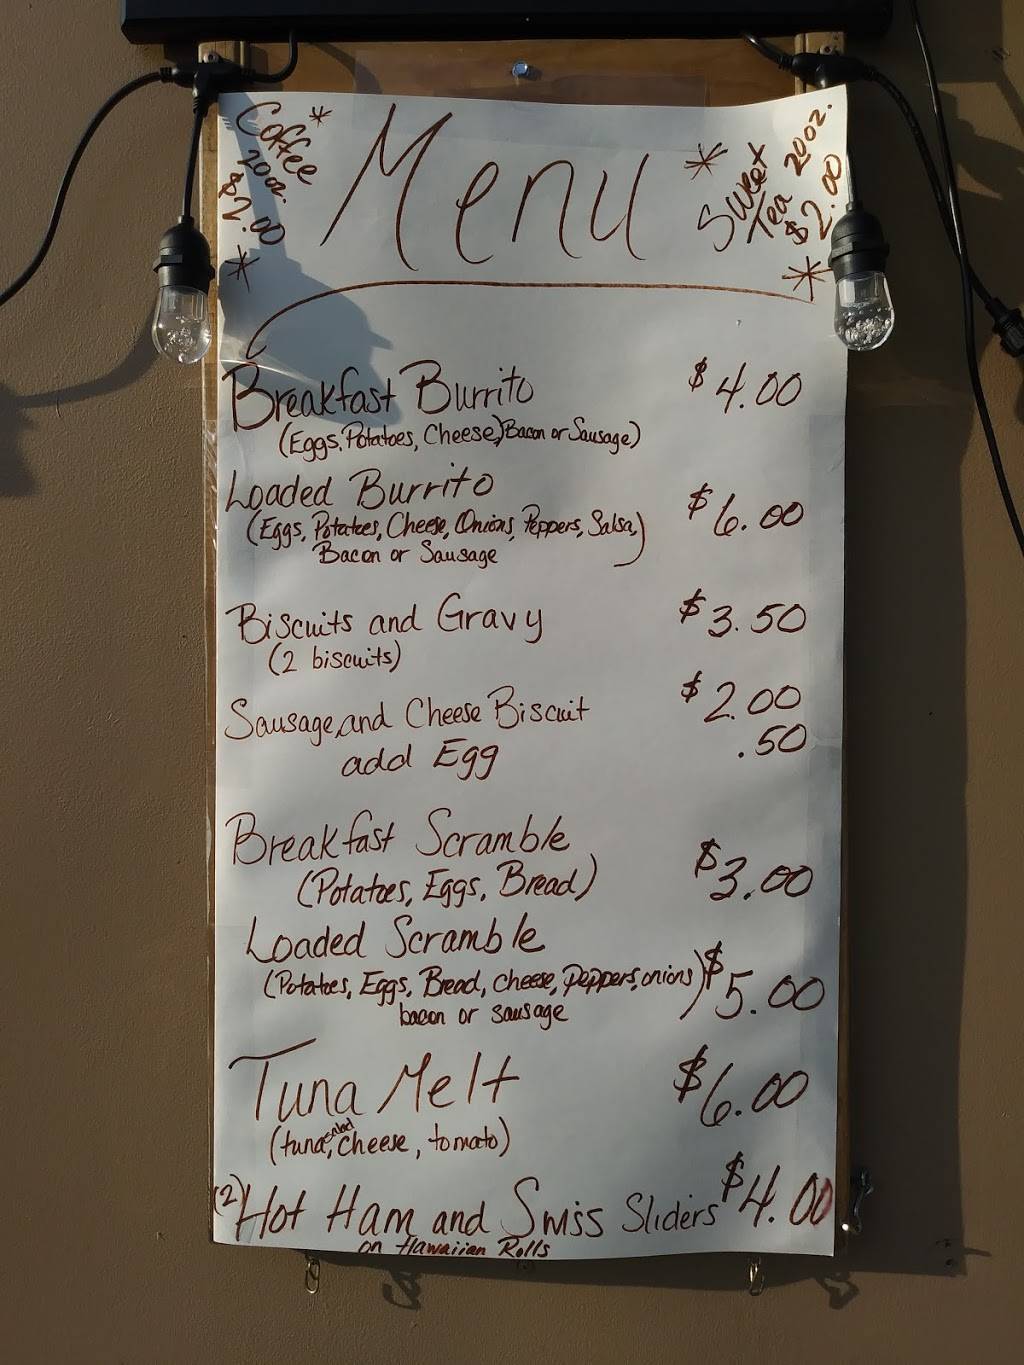 * Coffee
20oz.
$2.00
*
Menu
* Sweet
Tea 20oz.
$2.00
*
Breakfast Burrito $4.00
(Eggs, Potatoes, Cheese, Bacon or Sausage)
Loaded Burrito $6.00
(Eggs, Potatoes, Cheese, Onions, Peppers, Salsa,
Bacon or Sausage)
Biscuits and Gravy $3.50
(2 biscuits)
Sausage, and Cheese Biscuit $2.00
add Egg .50
Breakfast Scramble
(Potatoes, Eggs, Bread) $3.00
Loaded Scramble
(Potatoes, Eggs, Bread, cheese, peppers, onions) $5.00
bacon or sausage
Tuna Melt $6.00
(tuna salad, cheese, tomato)
(2) Hot Ham and Swiss Sliders $4.00
on Hawaiian Rolls